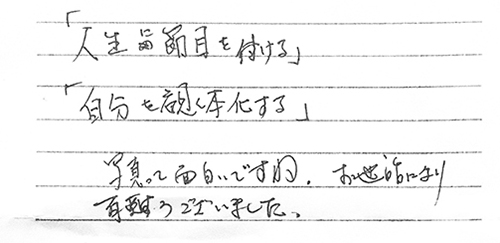 「人生に節目を付ける」
「自分を視える化する」
写真って面白いですね。お世話になり
有難うございました。